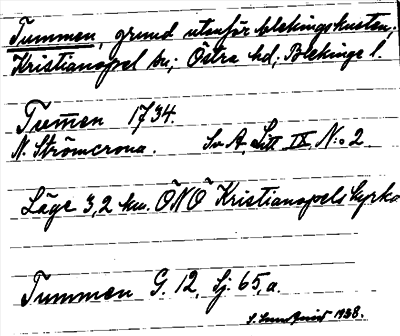 Tummen, grund utanför blekingskusten;
Kristianopel sn; Östra hd; Blekinge l.
Tum̄en 1734.
N. Strömcrona. Sv A, Litt IX N:o 2
Läge 3,2 km. ÖNÖ Kristianopels kyrka
Tummen G. 12, Sj. 65, a.
S. 1938.